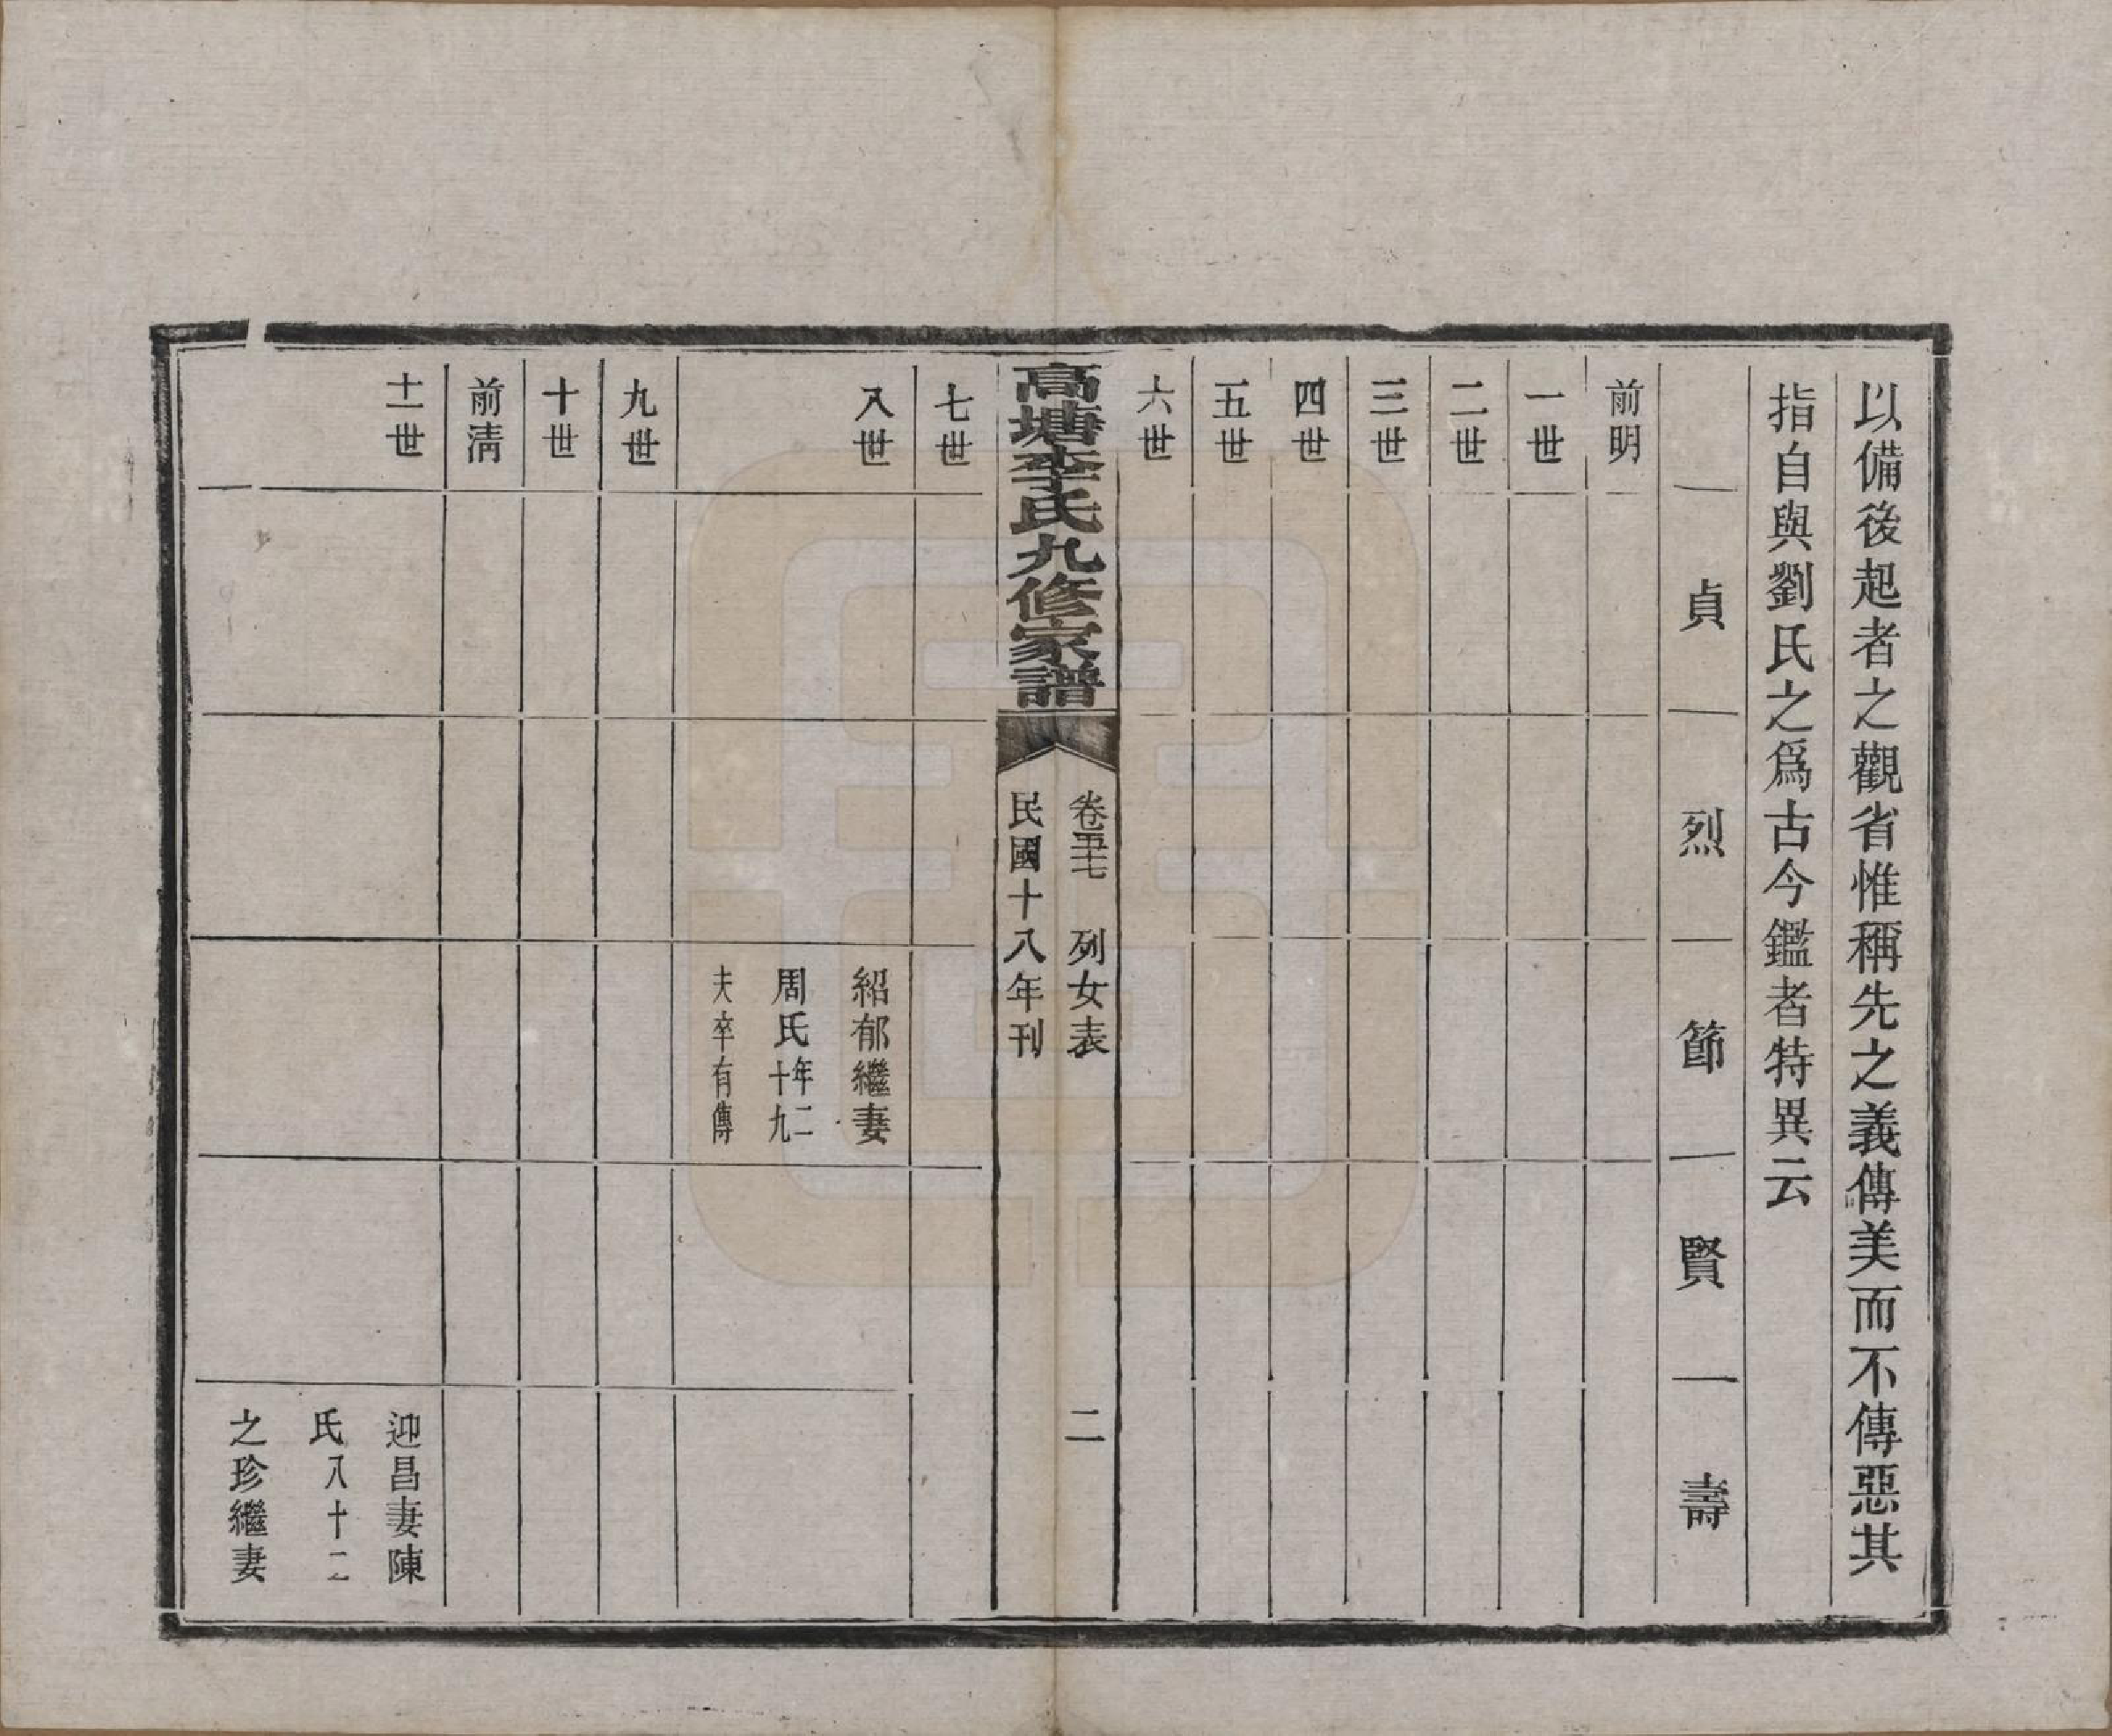 以備後起者之觀省惟稱先之義傳美而不傳惡其
指自與劉氏之爲古今鑑者特異云
貞 烈 節 賢 壽
前明
一世
二世
三世
四世
五世
六世
高塘李氏九修家譜
卷五十七 列女表 二
民國十八年刊
七世
八世 紹郁繼妻
周氏年二十九
夫卒有傳
九世
十世
前清
十一世 迎昌妻陳
氏八十二
之珍繼妻